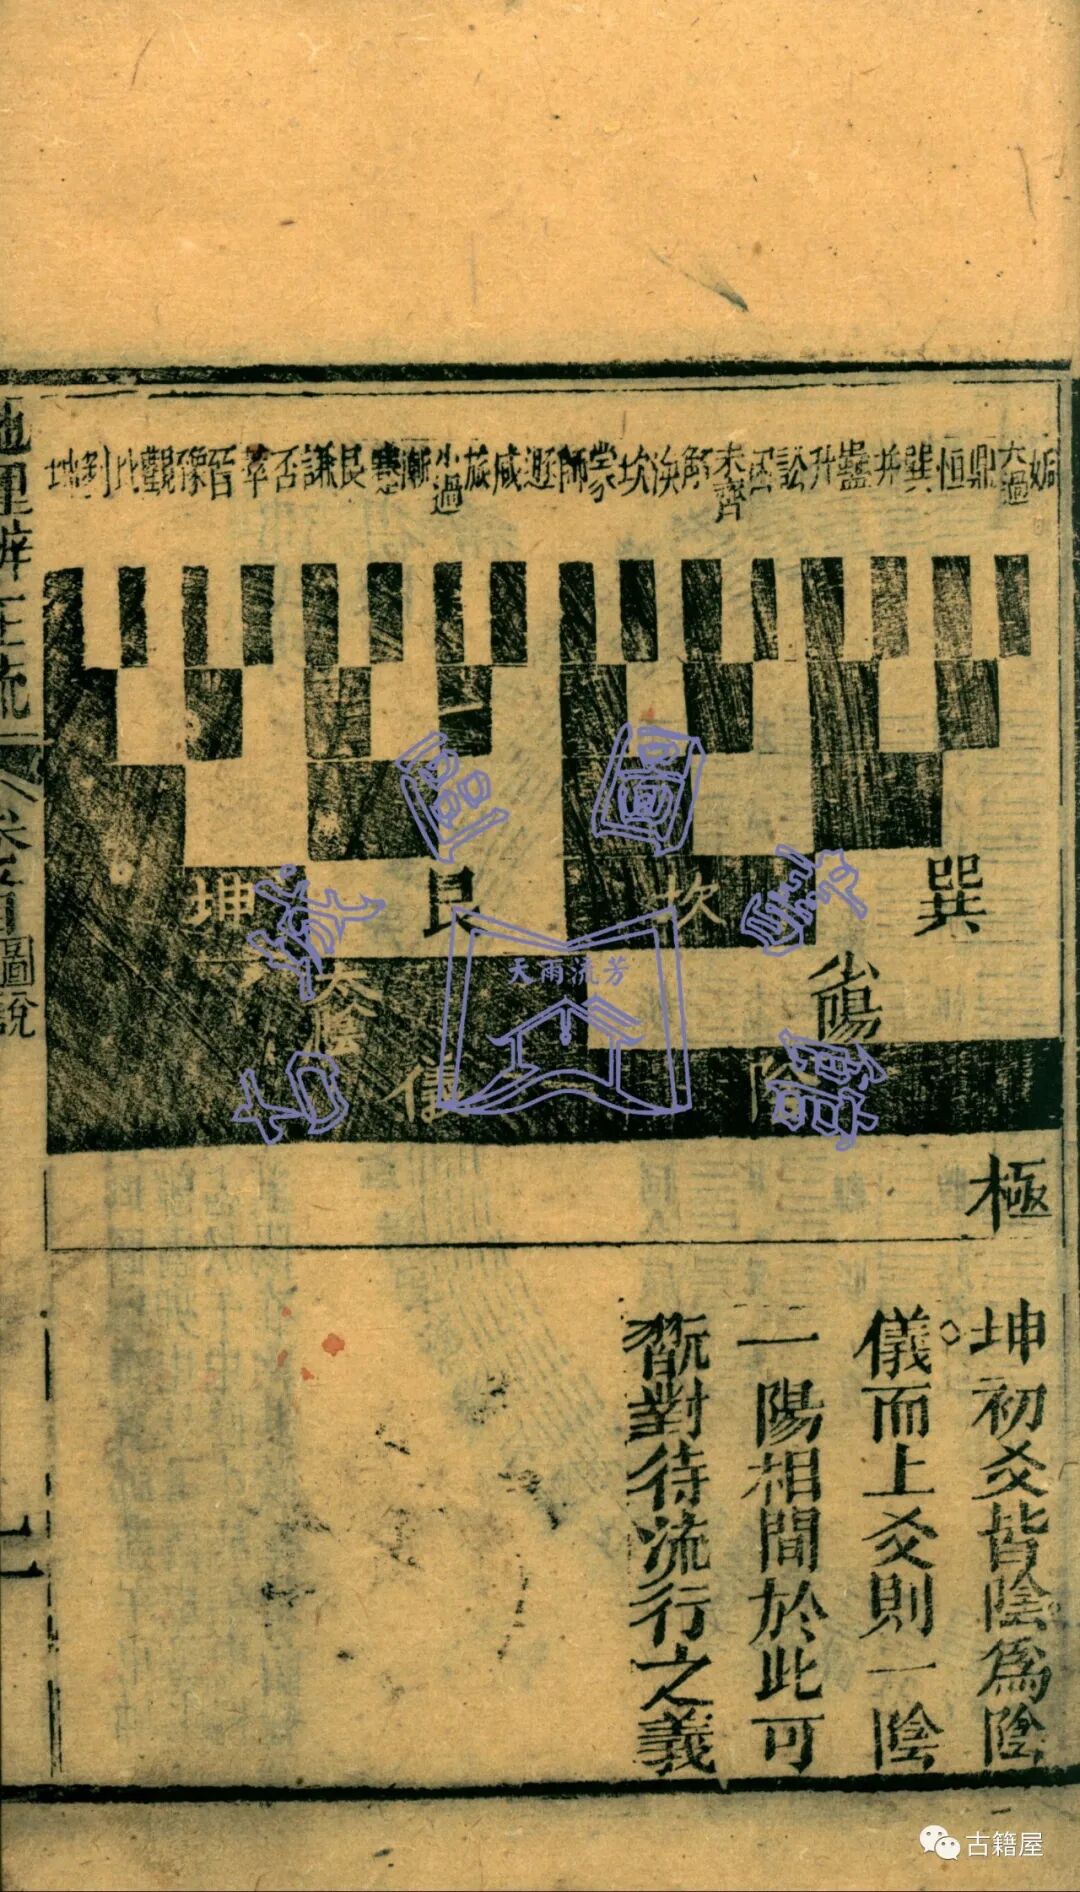 姤 大過 鼎 恒 巽 井 蠱 升 訟 困 未齊 解 渙 坎 蒙 師 遯 咸 旅 小過 漸 蹇 艮 謙 否 萃 晉 豫 觀 比 剝 坤
巽 坎 艮 坤
少陽 太陰
陰 儀
極
坤初爻皆陰爲陰
儀而上爻則一陰
一陽相間於此可
翫對待流行之義
地理辨正疏 卷首 圖說
古城區圖書館
天雨流芳
古籍屋